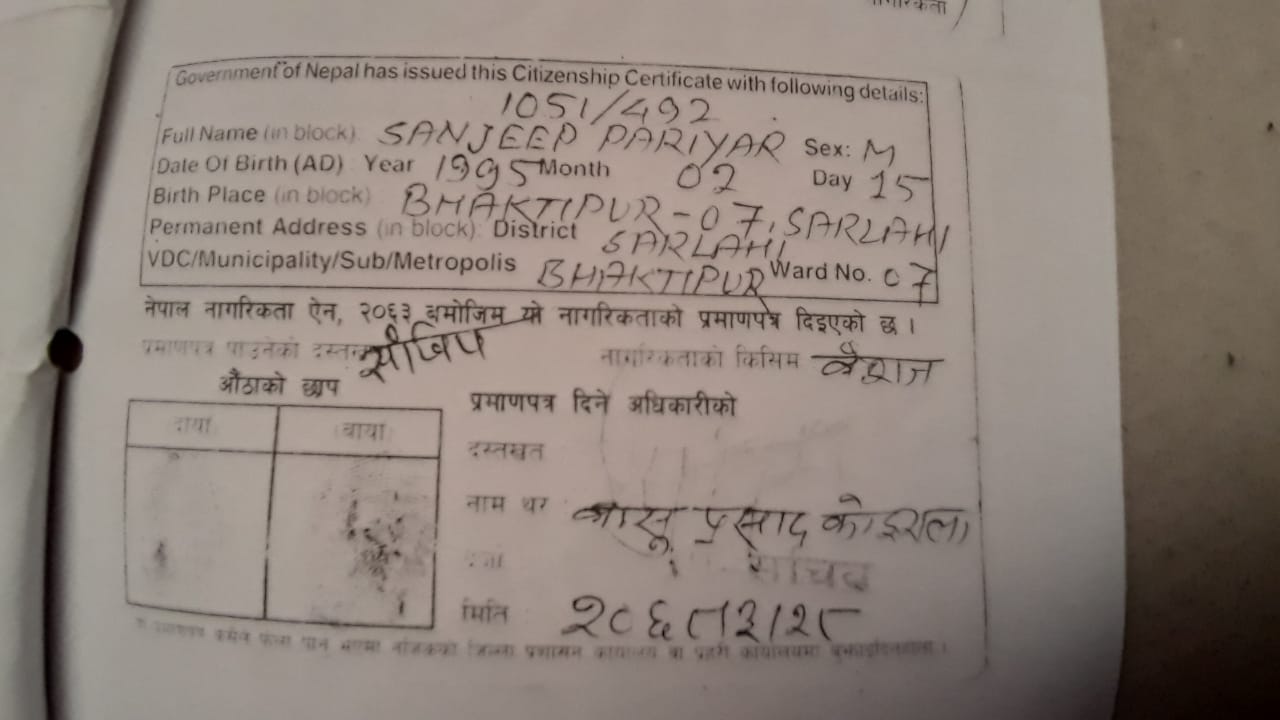 नागरिकता
Government of Nepal has issued this Citizenship Certificate with following details:
1051/492
Full Name (in block): SANJEEP PARIYAR Sex: M
Date Of Birth (AD) Year 1995 Month 02 Day 15
Birth Place (in block) BHAKTIPUR-07, SARLAHI
Permanent Address (in block): District SARLAHI
VDC/Municipality/Sub/Metropolis BHAKTIPUR Ward No. 07
नेपाल नागरिकता ऐन, २०६३ बमोजिम यो नागरिकताको प्रमाणपत्र दिइएको छ ।
प्रमाणपत्र पाउनेको दस्तखत नागरिकताको किसिम वंशज
औंठाको छाप
प्रमाणपत्र दिने अधिकारीको
दायाँ बायाँ
दस्तखत
नाम थर प्रसाद कोइराला
दर्जा
मिति